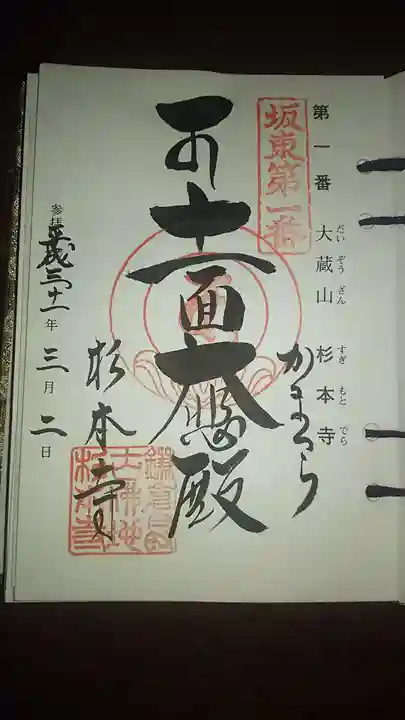 第一番 大蔵山 杉本寺
だい ぞう ざん すぎ もと でら
坂東第一番
かまくら
十一面大悲殿
杉本寺
参拝 平成三十一年 三月 二日